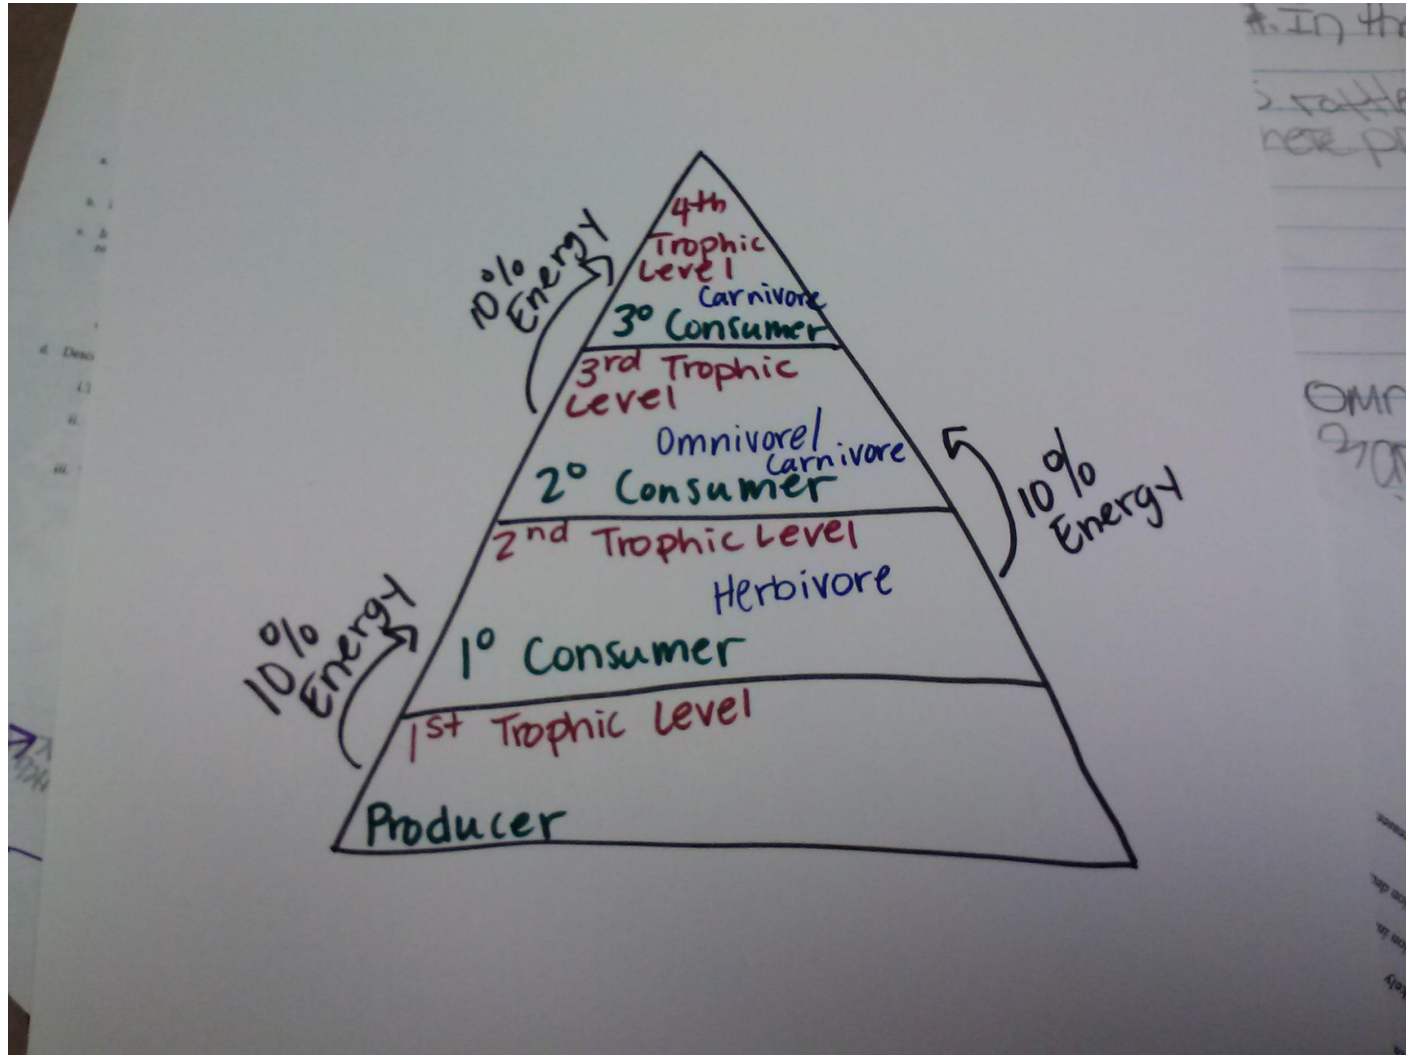 4th
Trophic
Level
Carnivore
3° Consumer
10%
Energy
3rd Trophic
Level
Omnivore/
Carnivore
2° Consumer
10%
Energy
2nd Trophic Level
Herbivore
1° Consumer
10%
Energy
1st Trophic Level
Producer
#. In
d.
ii.
iii.